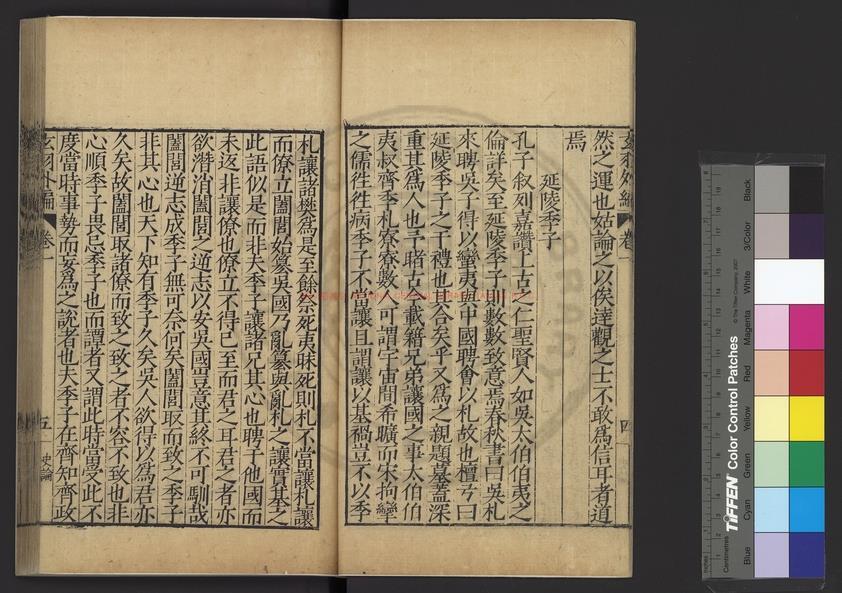 然之運也姑論之以俟達觀之士不敢爲信耳者道
焉
延陵季子
孔子叙列嘉讚上古之仁聖賢人如吳太伯伯夷之
倫詳矣至延陵季子則數數致意焉春秋書曰吳札
來聘吳子得以蠻夷與中國聘會以札故也檀弓曰
延陵季子之于禮也其合矣乎又爲之親題墓蓋深
重其爲人也予睹古今載籍兄弟讓國之事太伯伯
夷叔齊季札寥寥數人可謂宇宙間希曠而宋拘攣
之儒徃徃病季子不當讓且謂讓以基禍豈不以季
札讓諸樊爲是至餘祭死夷昧死則札不當讓札讓
而僚立闔閭始篡吳國乃亂篡與亂札之讓實基之
此語似是而非夫季子讓諸兄其心也聘于他國而
未返非讓僚也僚立不得已至而君之耳君之者亦
欲潛消闔閭之逆志以安吳國豈意其終不可馴哉
闔閭逆志成季子無可奈何矣闔閭取而致之季子
非其心也天下知有季子久矣吳人欲得以爲君亦
久矣故闔閭取諸僚而致之致之者不容不致也非
心順季子畏忌季子也而譚者又謂此時當受此不
度當時事勢而妄爲之說者也夫季子在齊知齊政
玄羽外編
卷一
四
玄羽外編
卷一
五
史論
TIFFEN Color Control Patches
© The Tiffen Company, 2007
Centimetres
Inches
Blue
Cyan
Green
Yellow
Red
Magenta
White
3/Color
Black